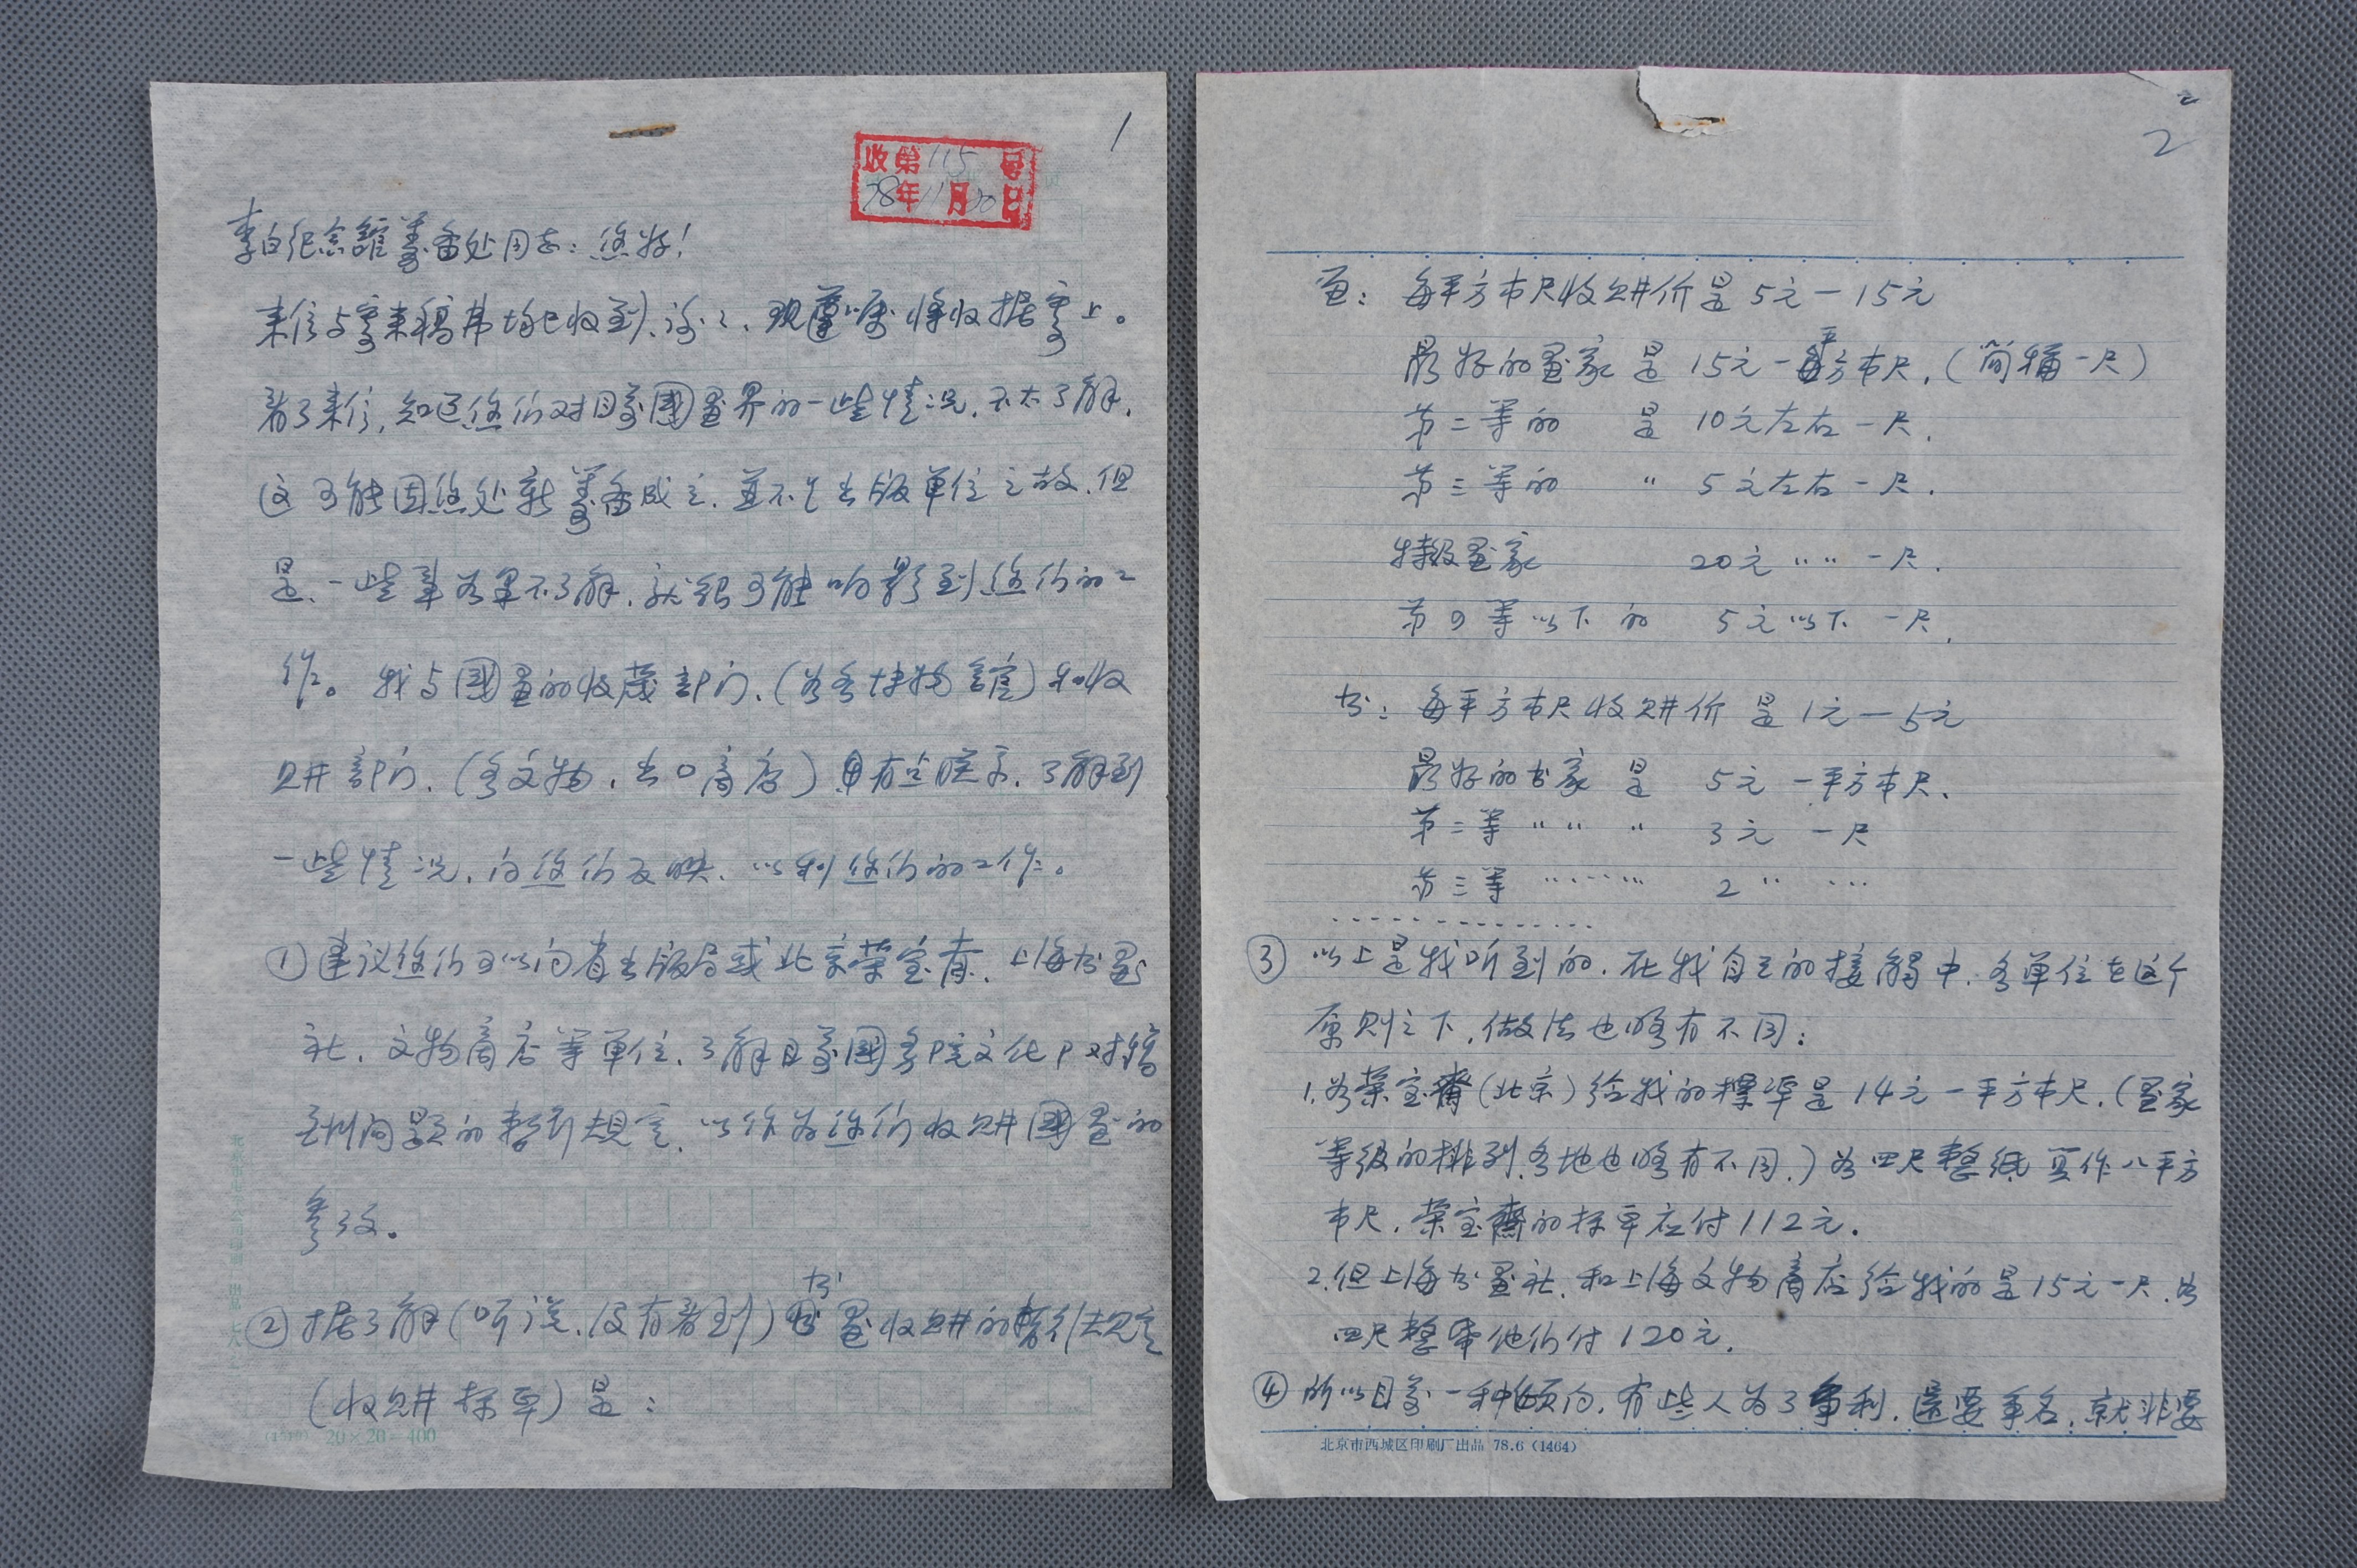 1
收第115号
78年11月20日
李白纪念馆筹备处同志：您好！
来信与寄来稿费均已收到、谢谢、现遵嘱将收据寄上。
看了来信，知道您们对目前國畫界的一些情况，不太了解，
这可能因您处新筹备成立，並不是出版单位之故，但
是、一些事如果不了解，就很可能响影到您们的工
作。我与國畫的收藏部门、（如各博物馆）和收
购部门、（各文物，出口商店）有点联系，了解到
一些情况，向您们反映，以利您们的工作。
①建议您们可以向省出版局或北京荣宝斋、上海书畫
社，文物商店等单位，了解目前國务院文化部对稿
酬问题的暂行规定，以作为您们收购國畫的
参考。
②据了解（听说，没有看到）书畫收购的暂行规定
（收购标准）是：
20×20=400
2
画：每平方市尺收购价是5元—15元
最好的畫家是15元一平方市尺，（简称一尺）
第二等的 是 10元左右一尺，
第三等的 〃 5元左右一尺．
特級畫家 20元〃〃一尺．
第四等以下的 5元以下一尺，
书：每平方市尺收购价是1元—5元
最好的书家是 5元一平方市尺、
第二等〃〃 〃 3元 一尺
第三等 〃 2〃
③以上是我听到的，在我自己的接觸中，各单位在这个
原则之下，做法也略有不同：
1.如荣宝齋（北京）给我的標準是14元一平方市尺，（畫家
等级的排列，各地也略有不同，）如四尺整纸算作八平方
市尺，荣宝齋的标准应付112元．
2.但上海书畫社、和上海文物商店给我的是15元一尺，如
四尺整纸他们付120元，
④所以目前一种倾向，有些人为了争利，還要争名，就非要
北京市西城区印刷厂出品 78.6（1464）